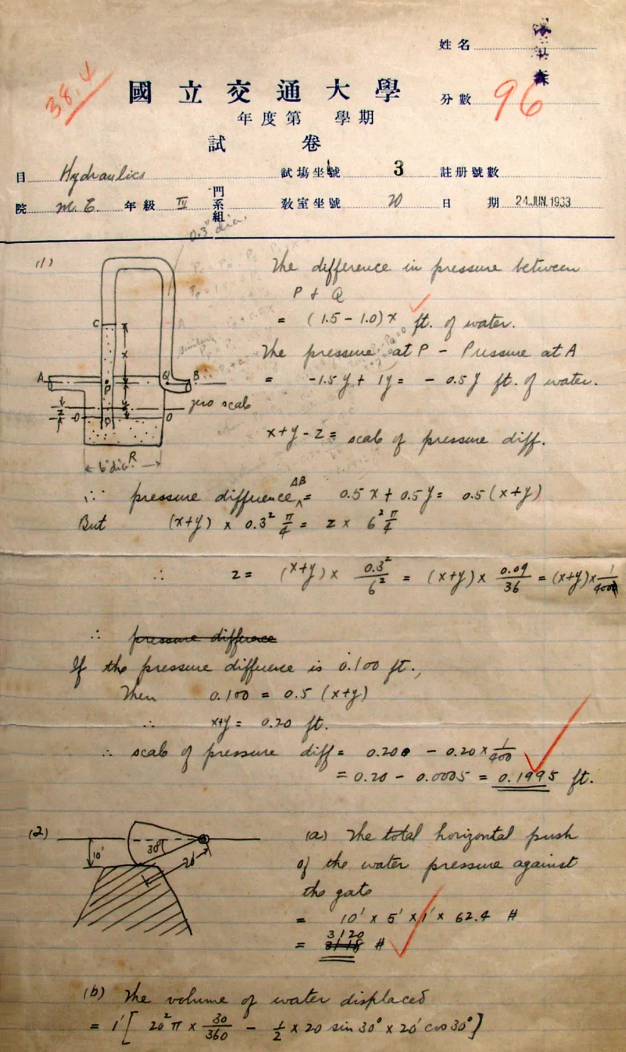 姓名 森
38.4
國立交通大學
分數 96
年度第 學期
試卷
目 Hydraulics 試場坐號 3 註册號數
院 M. E. 年級 IV 門系組 教室坐號 20 日期 24.JUN.1933
0.3" dia.
(1)
The difference in pressure between
P + Q
= (1.5 - 1.0)x ft. of water.
The pressure at P - Pressure at A
= -1.5y + 1y = - 0.5y ft. of water.
x+y-z = scale of pressure diff.
C
x
A
P
Q
B
y
zero scale
z
O
O
R
6" dia.
∴ pressure difference AB = 0.5x + 0.5y = 0.5 (x+y)
But (x+y) x 0.3² π/4 = z x 6² π/4
∴ z = (x+y) x 0.3²/6² = (x+y) x 0.09/36 = (x+y) x 1/400
∴ pressure difference
If the pressure difference is 0.100 ft.,
Then 0.100 = 0.5 (x+y)
∴ x+y = 0.20 ft.
∴ scale of pressure diff = 0.200 - 0.20 x 1/400
= 0.20 - 0.0005 = 0.1995 ft.
(2)
10'
30°
20'
(a) The total horizontal push
of the water pressure against
the gate
= 10' x 5' x 1' x 62.4 #
= 3120 #
(b) The volume of water displaced
= 1' [ 20² π x 30/360 - 1/2 x 20 sin 30° x 20' cos 30° ]